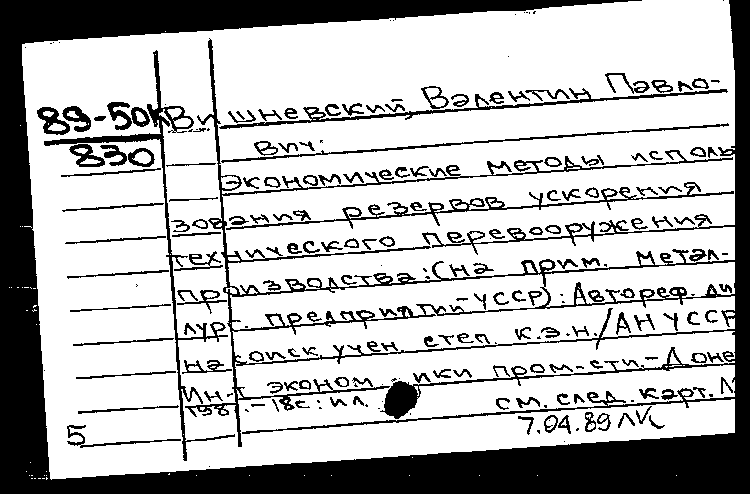 89-50К
830
Вишневский, Валентин Павло-
вич:
Экономические методы исполь
зования резервов ускорения
технического перевооружения
производства: (на прим. метал-
лург. предприятий УССР): Автореф. ди
на соиск. учен. степ. к.э.н. / АН УССР
Ин-т экономики пром-сти. - Доне
198 . - 18с: ил.
см. след. карт.
7.04.89 ЛК
5